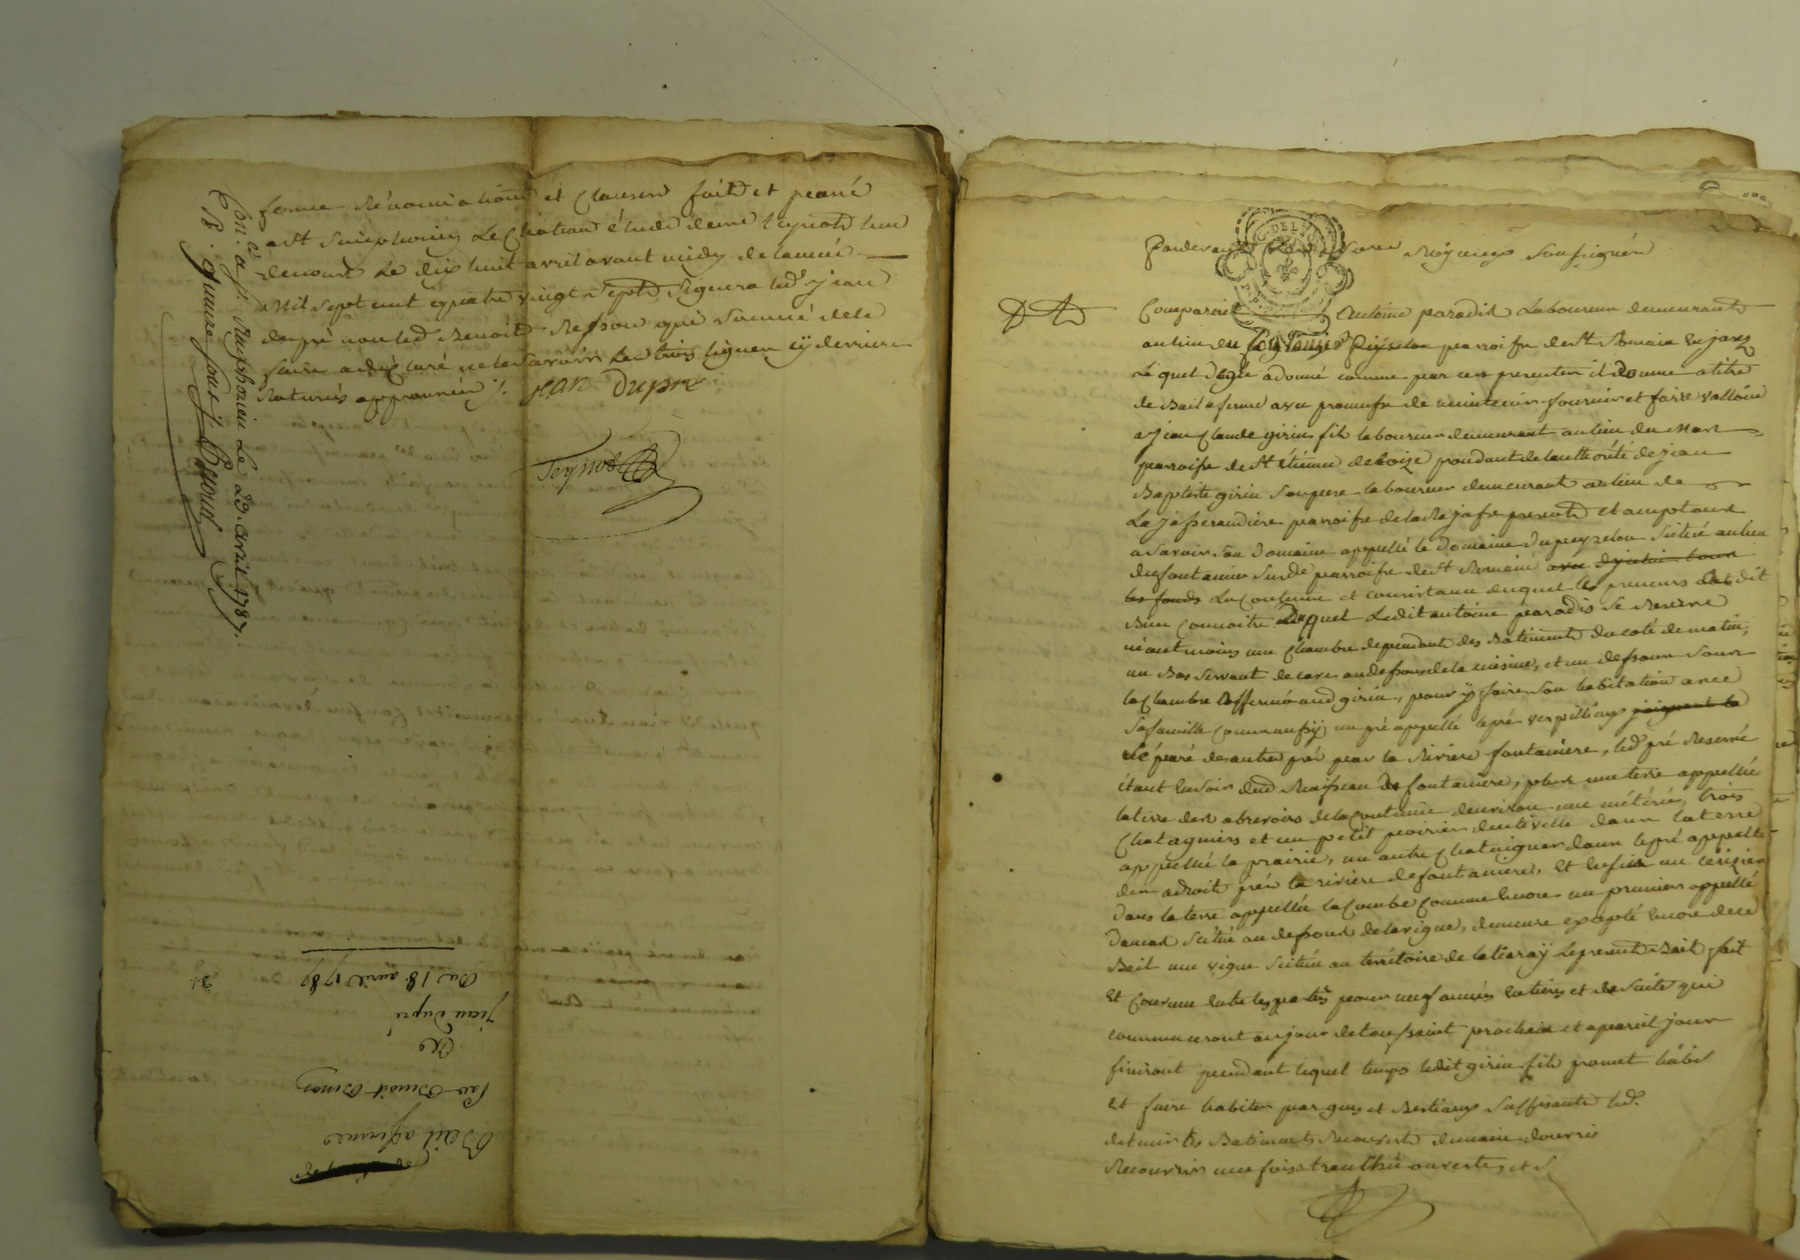 ferme Renonciations et Clauses fait et passé
a St Simphorien Le Chateau étude de me teynot l'un
denous Le dix huit avril avant midy de lannée
Mil sept cent quatre vingt sept Signera led. Jean
dupré non led. Benoit qui Sommé dele
faire a déclaré ne le Savoir Les trois lignes cy derriere
Raturés approuvées /. jean Dupre
Teynot
Con. é a St. Simphorien Le 20. avril 1787.
R. quinze sous
Du 18 avril 1787
jean dupré
A
Par Benoit
Bail afermes
31
Pardevant Les Nores Royaux Soussignés
Comparait Antoine paradis Laboureur demeurant
au lieu du parroisse de St Romain En jarez
Lequel de gré a donné comme par ces presentes il donne a titre
de Bail a ferme avec promesse de maintenir fournir et faire valloir
a Jean Claude girin fils laboureur demeurant au lieu du Mars
parroisse de St Etienne de Coize procédant de lauthorité de Jean
Baptiste girin Son pere laboureur demeurant au lieu de
La Jasserandiere parroisse de Larajasse presents et acceptant
a Savoir Son Domaine appellé le Domaine Dupeyzelon Scitué au lieu
de fontanier Surde parroisse de St Romain
les fonds La Contenue et consistance duquel les preneurs ont dit
Bien Connoitre Duquel Ledit antoine paradis Se Reserve
néantmoins une Chambre dependante des Batiments du coté de matin,
un Bas Servant de cave au dessous de la cuisine, et un dessous Sous
la Chambre affermé aud girin, pour y faire Son habitation avec
Sa famille Comme aussy un pré appellé le pré joignant la
Séparé des autres prés par la Riviere fontaniere, led. pré Reservé
étant En Soir dud Ruisseau de fontaniere, plus une terre appellée
la terre des abrevoirs de la Contenue denviron une métérée, trois
Chataigniers et un petit poirier dans la terre
appellée la prairie, un autre Chataignier dans le pré appellé
den adroit prés la riviere de fontaniere, Et Enfin un Cerizier
dans la terre appellée la Combe Comme Encore un prunier appellé
Damas Scitué au dessous de la vigne, demeure excepté Encore de ce
Bail une vigne Scituée au térritoire de Le present Bail fait
Et Convenu Entre les parties pour neuf années Entieres et de Suite qui
commenceront au jour de toussaint prochain et a pareil jour
finiront pendant lequel temps ledit girin fils promet habiter
Et faire habiter par gens et Bestiaux Suffisants led.
domaine les Batiments Recouverts demain douvrier
Recouvrir une fois a tranchée ouverte, et